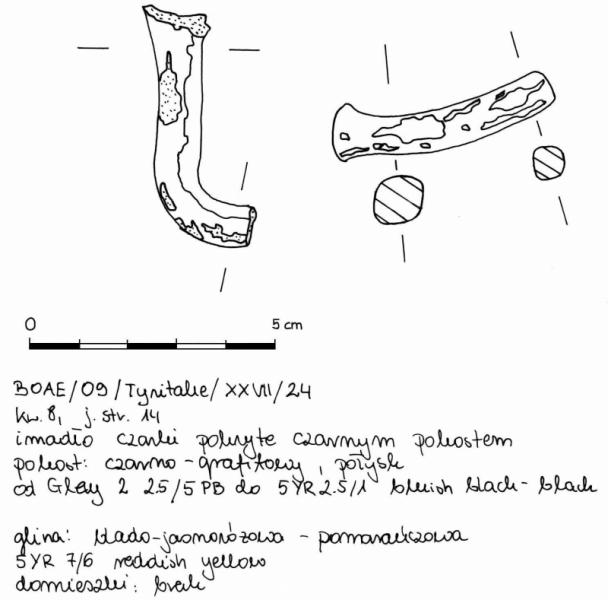 0 5 cm
BOAE/09/Tyritake/XXVII/24
kw. 8, j. str. 14
imadło czarki pokryte czarnym pokostem
pokost: czarno-grafitowy, połysk
od Gley 2 2.5/5 PB do 5YR 2.5/1 bluish black - black
glina: blado-jasnoróżowa - pomarańczowa
5YR 7/6 reddish yellow
domieszki: brak